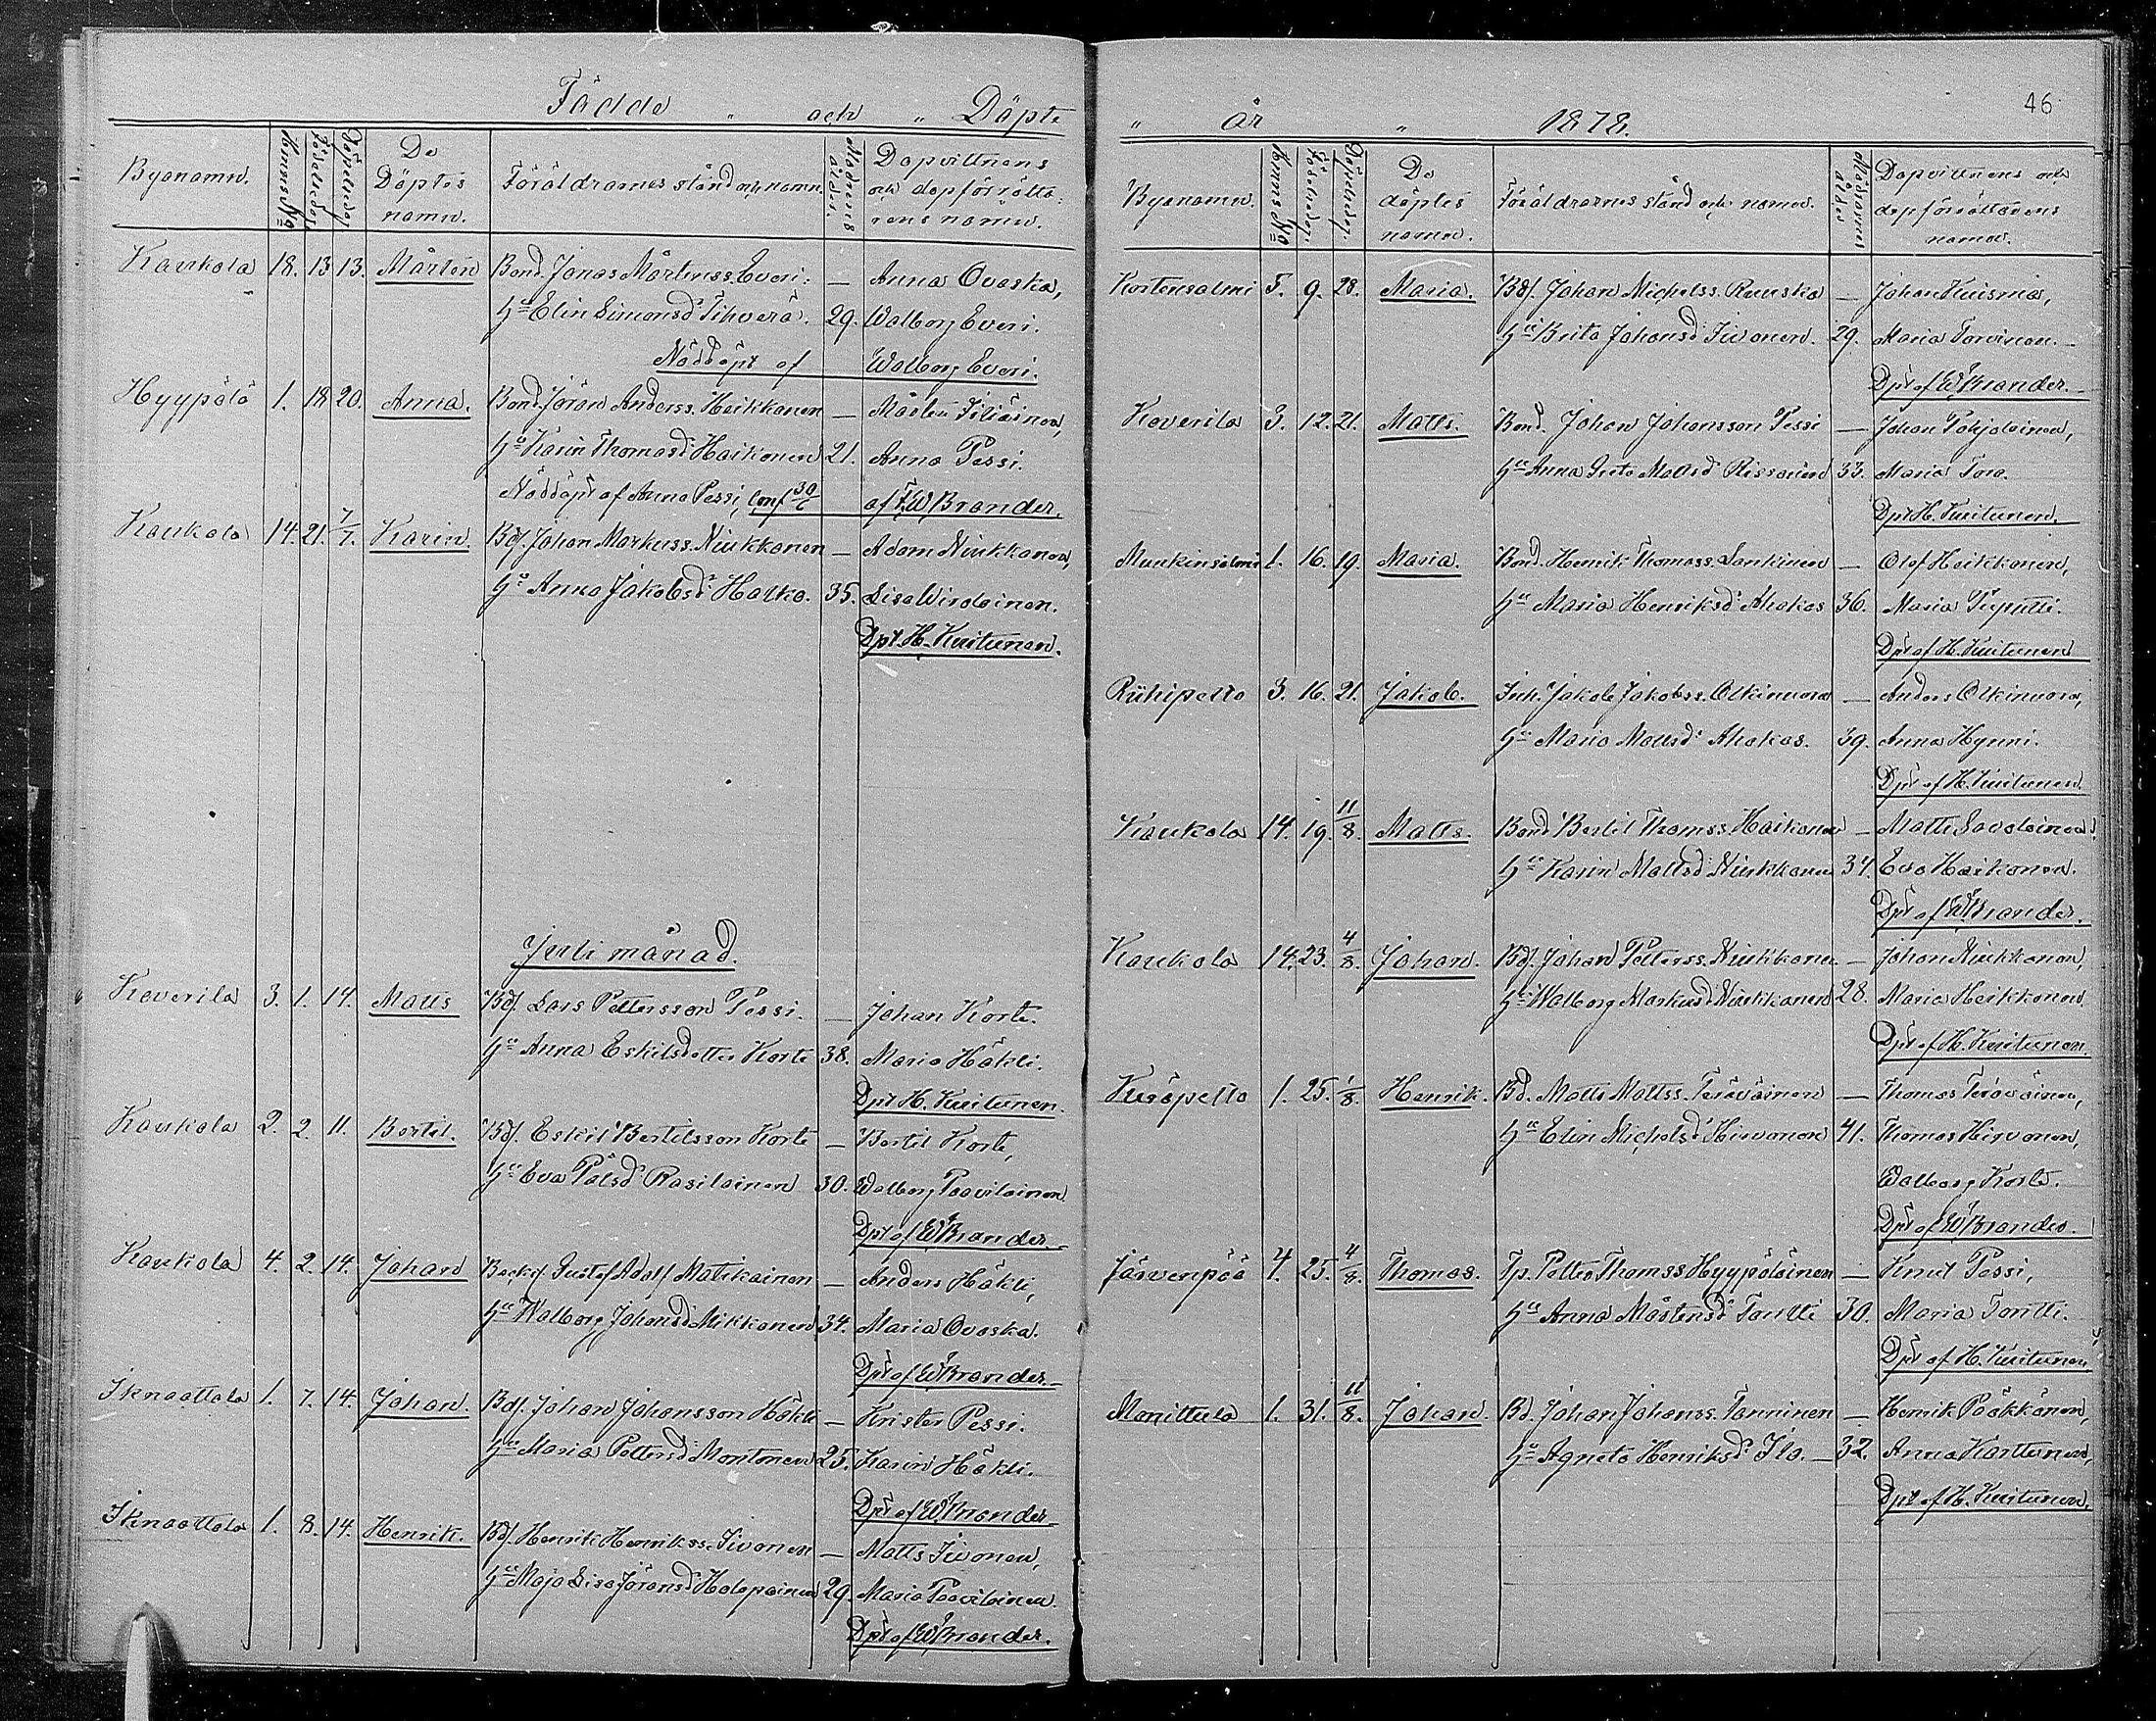 Födde " och " Döpte
Byanamn. Hemms No Födelsedag Döpelsedag De Döptes namn. Föräldrarnes stånd och namn. Modrens ålder. Dopvittnens och dopförrätta: rens namn.
Kaukola 18. 13 13. Mårten Bond. Jonas Mårtenss. Everi: — Anna Ovaska,
Hu Elin Simonsd: Tihverä. 29. Walborg Everi.
Nöddöpt af Walborg Everi.
Hyypölä 1. 18 20. Anna. Bond. Jöran Anderss. Heikkonen — Mårten Siliäinen,
Hu Karin Thomasd: Haikonen 21. Anna Pessi.
Nöddöpt af Anna Pessi, conf 30/6 af F.W. Brander.
Kaukola 14. 21. 7/7. Karin. Bdf. Johan Markuss. Niukkanen — Adam Niukkanen,
Hu Anna Jakobsd: Hatka. 35. Lisa Wirolainen.
Dpt. H. Kuitunen.
Juli månad.
Koverila 3. 1. 14. Matts Bdf. Lars Pettersson Pessi. — Johan Korte.
Hu Anna Eskilsdotter Korte 38. Maria Häkli.
Dpt H. Kuitunen.
Kaukola 2. 2. 11. Bertil. Bdf. Eskil Bertilsson Korte — Bertil Korte,
Hu Eva Pålsd: Rasilainen 30. Walborg Paavilainen
Dpt af W Brander.
Kaukola 4. 2. 14. Johan Backf. Gustaf Adolf Matikainen — Anders Häkli,
Hu Walborg Johansd: Mikkonen 34. Maria Ovaska.
Dpt af W Brander.
Iknoattala 1. 7. 14. Johan. Bdf. Johan Johansson Häkli — Krister Pessi.
Hu Maria Pettersd: Montonen 25. Karin Häkli.
Dpt af W Brander
Iknoattala 1. 8. 14. Henrik. Bdf. Henrik Henrikss. Sivonen — Matts Sivonen,
Hu Maja Lisa Jöransd: Holopainen 29. Maria Paavilainen.
Dpt af W Brander.
" år " 1878. 46
Byanamn. Hemms No Födelsedag. Döpelsedag. De döptes namn. Föräldrarnes stånd och namn. Modrens ålder Dopvittnens och dopförrättarens namn.
Kortensalmi 5. 9. 28. Maria. Bdf. Johan Michelss. Ruuska — Johan Kuisma,
Hu Brita Johansd: Sivonen. 29. Maria Tarvinen.
Dpt af W Brander.
Koverila 3. 12. 21. Matts. Bond. Johan Johansson Pessi — Johan Pohjolainen,
Hu Anna Greta Mattsd: Rissanen 33. Maria Tara.
Dpt H. Kuitunen.
Munkinsalmi 1. 16. 19. Maria. Bond. Henrik Thomass. Lankinen — Olof Heikkonen,
Hu Maria Henriksd: Ahokas 36. Maria Pieputti.
Dpt af H. Kuitunen
Riihipelto 3. 16. 21. Jakob. Inh. Jakob Jakobss. Olkinuora — Anders Olkinuora,
Hu Maria Mattsd: Ahokas. 39. Anna Hynni.
Dpt af H. Kuitunen.
Kaukola 14. 19. 11/8. Matts. Bond Bertil Thomss. Haikonen — Matts Savolainen
Hu Karin Mattsd: Niukkanen 34. Eva Haikonen.
Dpt af W Brander.
Kaukola 14. 23. 4/8. Johan. Bdf. Johan Petterss. Niukkanen — Johan Niukkanen,
Hu Walborg Markusd: Niukkanen 28. Maria Heikkonen
Dpt af H. Kuitunen.
Kuräpelto 1. 25. 1/8. Henrik. Bd. Matts Mattss. Teräväinen — Thomas Teräväinen,
Hu Elin Michelsd: Hirvonen 41. Thomas Hirvonen,
Walborg Korte.
Dpt af W Brander.
Järvenpää 4. 25. 4/8. Thomas. Tp. Petter Thomss Hyypöläinen — Knut Pessi,
Hu Anna Mårtensd: Tontti 30. Maria Tontti.
Dpt af H. Kuitunen
Monittula 1. 31. 11/8. Johan. Bd. Johan Johanss. Tanninen — Henrik Pääkkönen,
Hu Agneta Henriksd: Ilo. — 32. Anna Karttunen,
Dpt af H. Kuitunen,